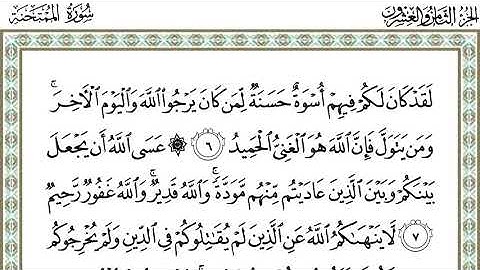 الجزء الثامن والعشرون
سورة الممتحنة
لَقَدْ كَانَ لَكُمْ فِيهِمْ أُسْوَةٌ حَسَنَةٌ لِّمَن كَانَ يَرْجُوا۟ ٱللَّهَ وَٱلْيَوْمَ ٱلْءَاخِرَ ۚ
وَمَن يَتَوَلَّ فَإِنَّ ٱللَّهَ هُوَ ٱلْغَنِىُّ ٱلْحَمِيدُ ٦ ۞ عَسَى ٱللَّهُ أَن يَجْعَلَ
بَيْنَكُمْ وَبَيْنَ ٱلَّذِينَ عَادَيْتُم مِّنْهُم مَّوَدَّةً ۚ وَٱللَّهُ قَدِيرٌ ۚ وَٱللَّهُ غَفُورٌ رَّحِيمٌ
٧ لَّا يَنْهَىٰكُمُ ٱللَّهُ عَنِ ٱلَّذِينَ لَمْ يُقَـٰتِلُوكُمْ فِى ٱلدِّينِ وَلَمْ يُخْرِجُوكُم